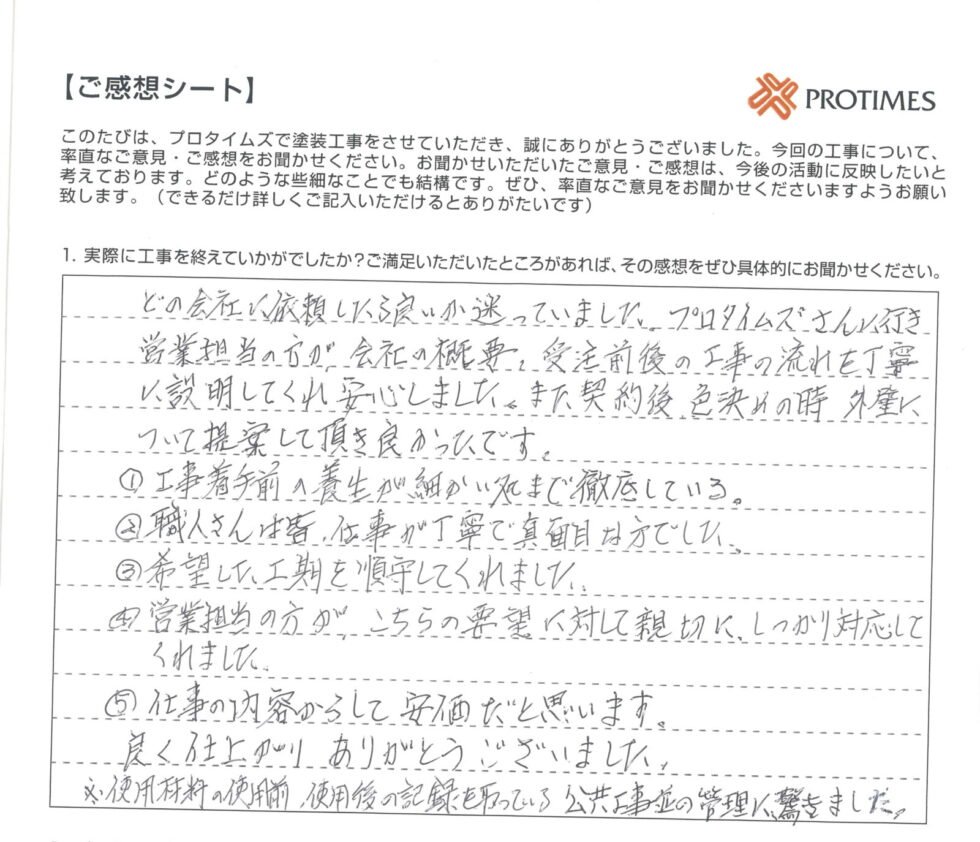 【ご感想シート】
PROTIMES
このたびは、プロタイムズで塗装工事をさせていただき、誠にありがとうございました。今回の工事について、
率直なご意見・ご感想をお聞かせください。お聞かせいただいたご意見・ご感想は、今後の活動に反映したいと
考えております。どのような些細なことでも結構です。ぜひ、率直なご意見をお聞かせくださいますようお願い
致します。（できるだけ詳しくご記入いただけるとありがたいです）
1. 実際に工事を終えていかがでしたか？ご満足いただいたところがあれば、その感想をぜひ具体的にお聞かせください。
どの会社に依頼したら良いか迷っていました。プロタイムズさんに行き
営業担当の方が、会社の概要、受注前後の工事の流れを丁寧
に説明してくれ安心しました。また契約後、色決めの時 外壁に
ついて提案して頂き良かったです。
①工事着手前の養生が細かい処まで徹底している。
②職人さんは皆、仕事が丁寧で真面目な方でした。
③希望した工期を順守してくれました。
④営業担当の方が、こちらの要望に対して親切に、しっかり対応して
くれました。
⑤仕事の内容からして安価だと思います。
良く仕上がり ありがとうございました。
※使用材料の使用前、使用後の記録を取っている 公共工事並の管理に驚きました。